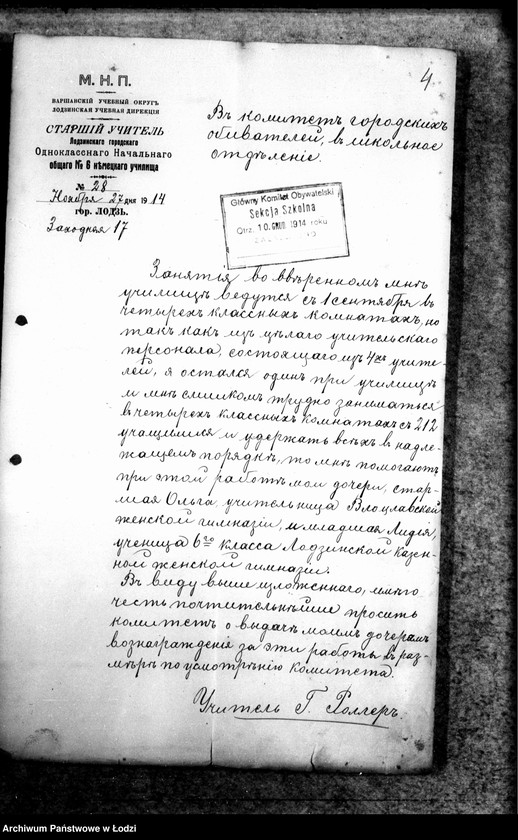 4
М. Н. П.
ВАРШАВСКІЙ УЧЕБНЫЙ ОКРУГЪ
ЛОДЗИНСКАЯ УЧЕБНАЯ ДИРЕКЦІЯ
СТАРШІЙ УЧИТЕЛЬ
Лодзинскаго городскаго
Однокласснаго Начальнаго
общаго № 6 нѣмецкаго училища
№ 28
Ноября 27 дня 1914
гор. ЛОДЗЬ.
Заходная 17
Въ комитетъ городскихъ
обивателей, въ школьное
отдѣленіе.
Główny Komitet Obywatelski
Sekcja Szkolna
Otrz. 10 GRUD. 1914 roku
Занятія во ввѣренномъ мнѣ
училищѣ ведутся съ 1 сентября въ
четырехъ классныхъ комнатахъ, но
такъ какъ изъ цѣлаго учительскаго
персонала, состоящаго изъ 4хъ учите-
лей, я остался одинъ при училищѣ
и мнѣ слишкомъ трудно заниматься
въ четырехъ классныхъ комнатахъ съ 212
учащимися и удержать всѣхъ въ надле-
жащемъ порядкѣ, то мнѣ помогаютъ
при этой работѣ мои дочери, стар-
шая Ольга, учительница Влоцлавской
женской гимназіи, и младшая Лидія,
ученица 6го класса Лодзинской казен-
ной женской гимназіи.
Въ виду выше изложеннаго, имѣю
честь почтительнѣйше просить
комитетъ о выдачѣ моимъ дочерямъ
вознагражденіе за эти работы въ раз-
мѣрѣ по усмотрѣнію комитета.
Учитель Г. Роллеръ.
Archiwum Państwowe w Łodzi